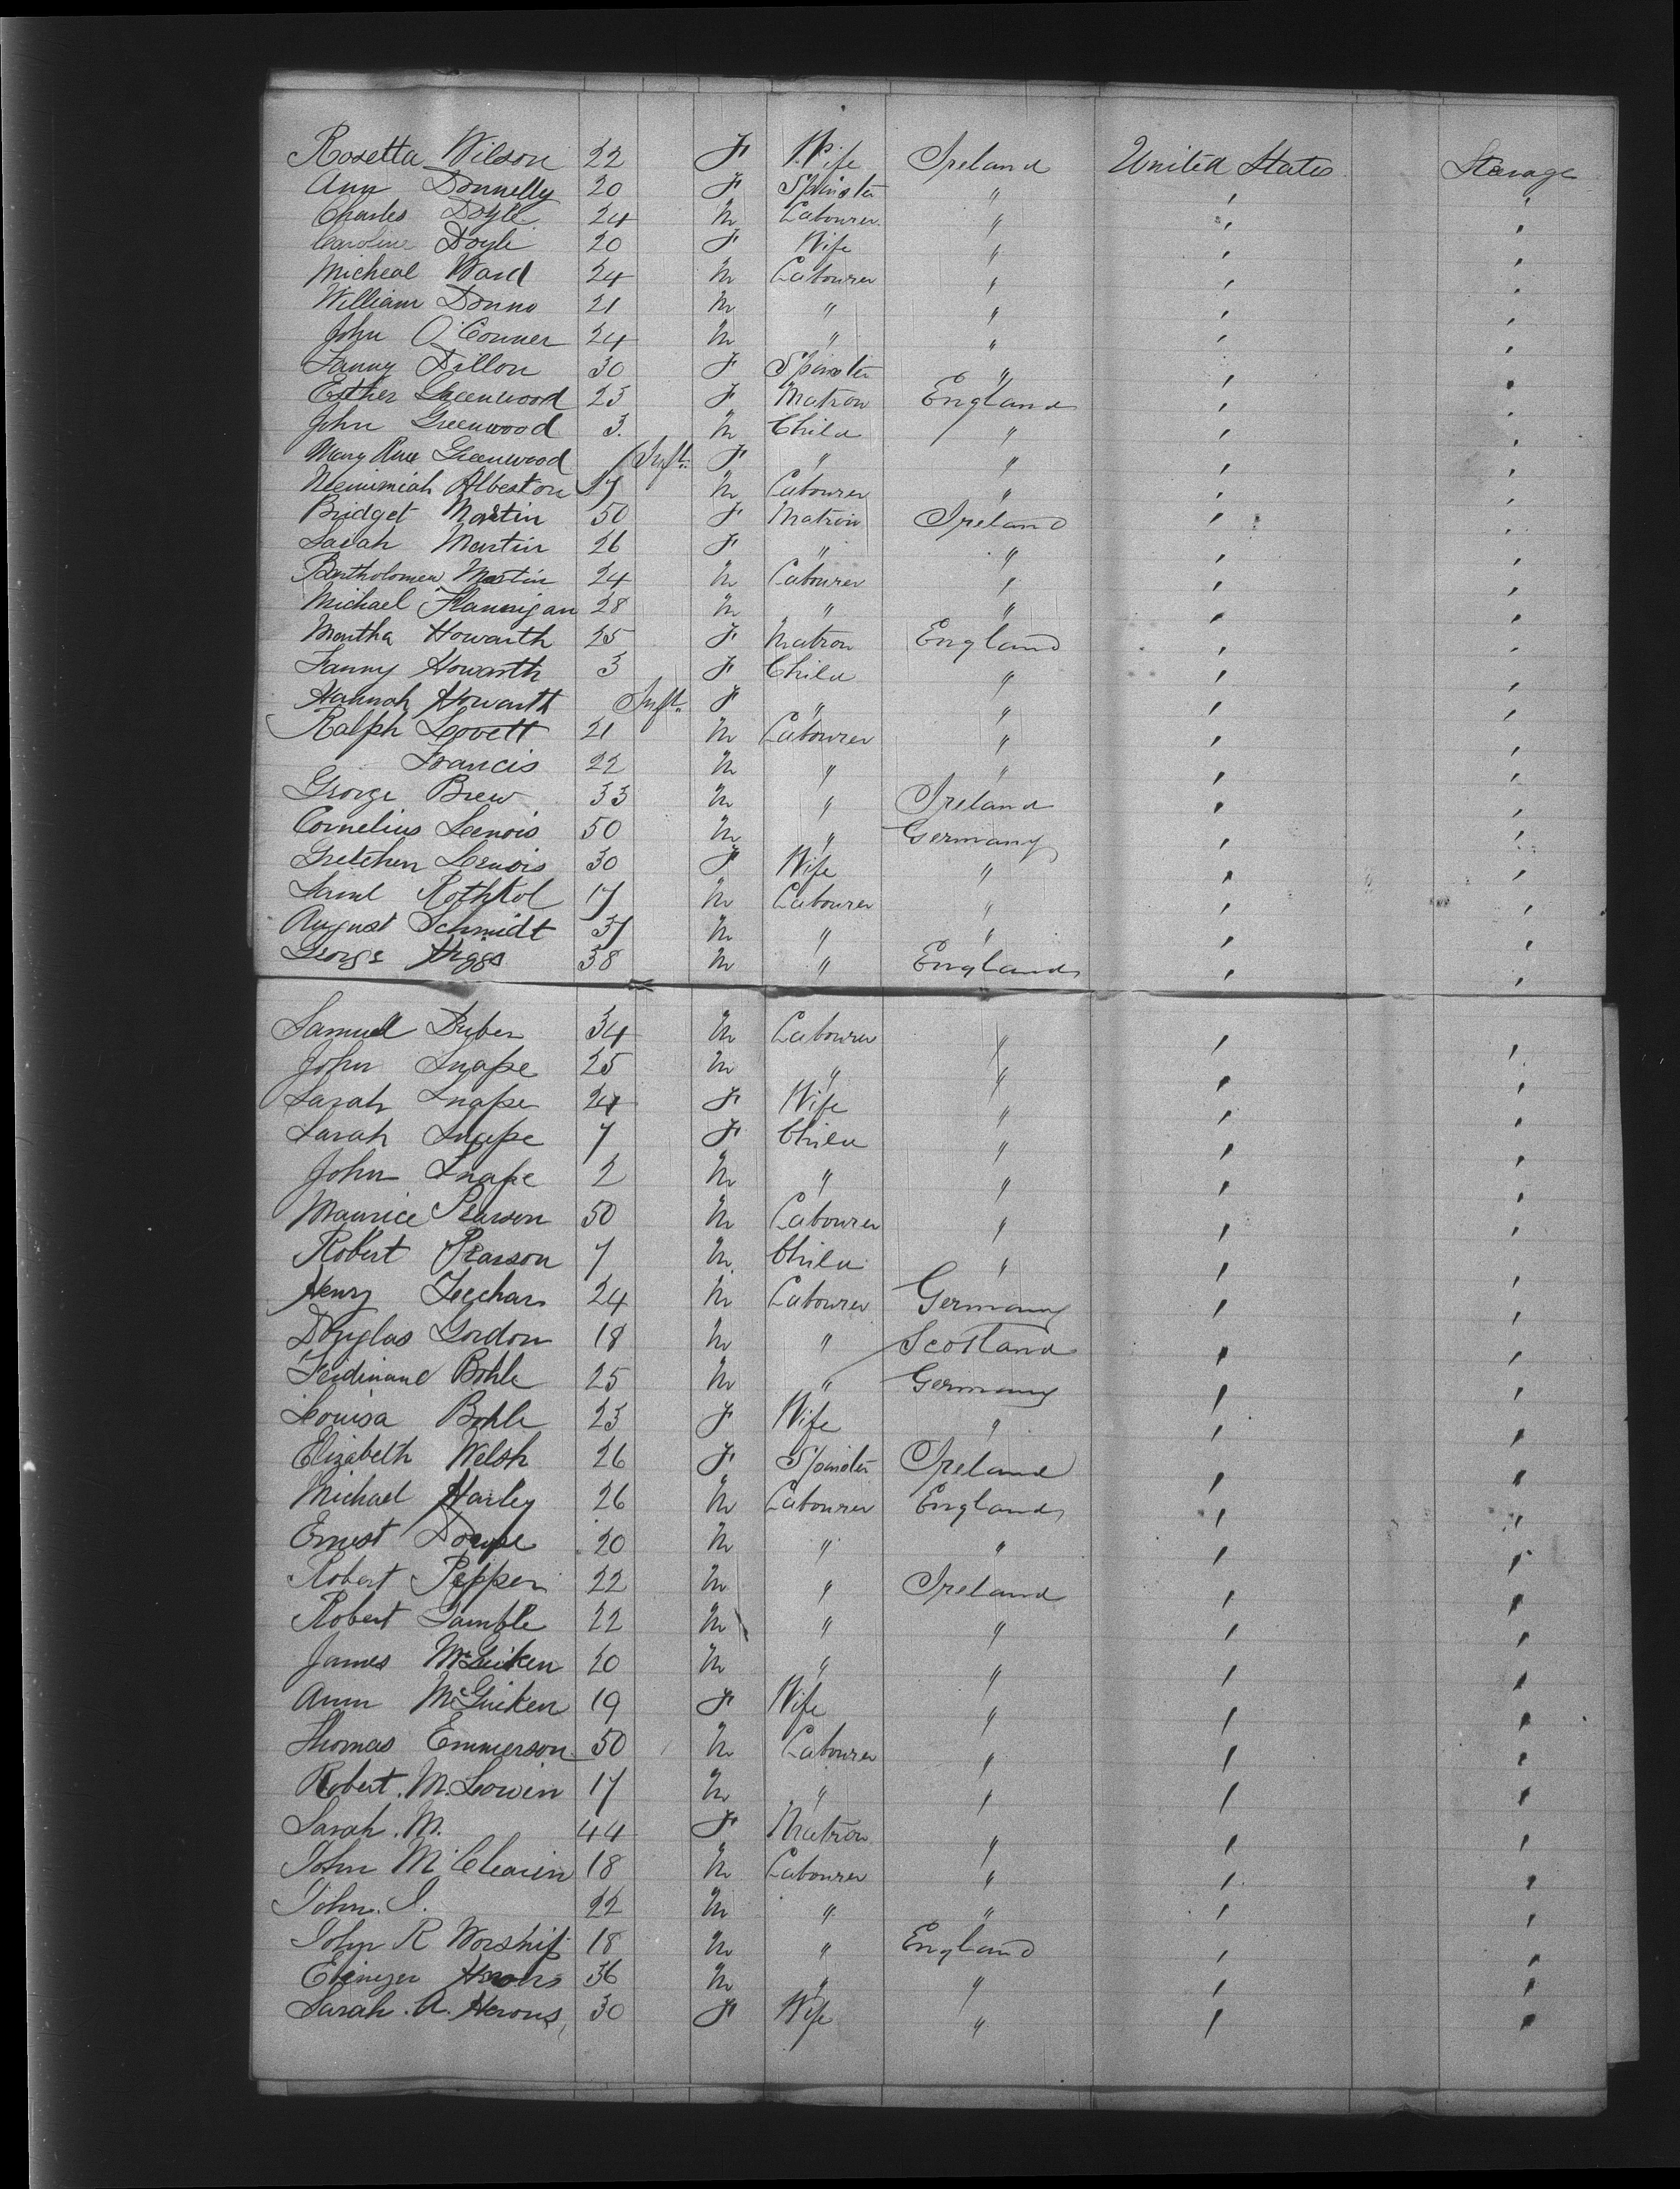 Rosetta Wilson 22 F Wife Ireland United States Sterage
Ann Donnelly 20 F Spinster " " "
Charles Doyle 24 M Labourer " " "
Caroline Doyle 20 F Wife " " "
Micheal Ward 24 M Labourer " " "
William Donno 21 M " " " "
John O'Conner 24 M " " " "
Fanny Dillon 30 F Spinster " " "
Esther Greenwood 23 F Matron England " "
John Greenwood 3 M Child " " "
Mary Greenwood Inft. F " " " "
Albeston 17 M Labourer " " "
Bridget Martin 50 F Matron Ireland " "
Sarah Martin 26 F " " " "
Bartholomew Martin 24 M Labourer " " "
Michael Flannigan 28 M " " " "
Martha Howarth 25 F Matron England " "
Fanny Howarth 3 F Child " " "
Hannah Howarth Inft. F " " " "
Ralph Lovett 21 M Labourer " " "
Francis 22 M " " " "
George Brew 33 M " Ireland " "
Cornelius Lenois 50 M " Germany " "
Gretchen Lenois 30 F Wife " " "
Saml Rothkol 17 M Labourer " " "
August Schmidt 37 M " " " "
George Higgs 38 M " England " "
Samuel 34 M Labourer " " "
John Snape 25 M " " " "
Sarah Snape 24 F Wife " " "
Sarah Snape 7 F Child " " "
John Snape 2 M " " " "
Maurice Pearson 50 M Labourer " " "
Robert Pearson 7 M Child " " "
Henry 24 M Labourer Germany " "
Douglas Gordon 18 M " Scotland " "
Ferdinand Bohle 25 M " Germany " "
Louisa Bohle 23 F Wife " " "
Elizabeth Welsh 26 F Spinster Ireland " "
Michael Harley 26 M Labourer England " "
Ernest 20 M " " " "
Robert Pepper 22 M " Ireland " "
Robert Gamble 22 M " " " "
James McGuiken 20 M " " " "
Ann McGuiken 19 F Wife " " "
Thomas Emmerson 50 M Labourer " " "
Robert. M. Lowin 17 M " " " "
Sarah. M. 44 F Matron " " "
John McClearin 18 M Labourer " " "
John. I. 22 M " " " "
John R Worship 18 M " England " "
Ebinezer Herons 36 M " " " "
Sarah. A. Herons 30 F Wife " " "